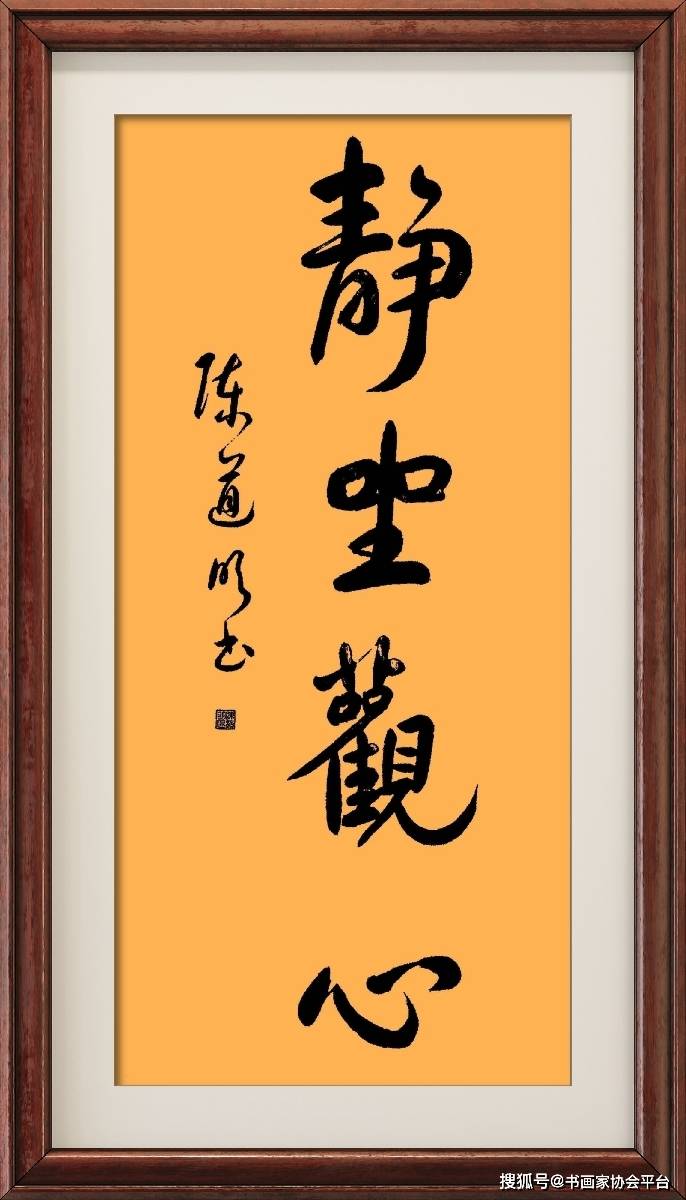 靜坐觀心
陈道明书
搜狐号@书画家协会平台